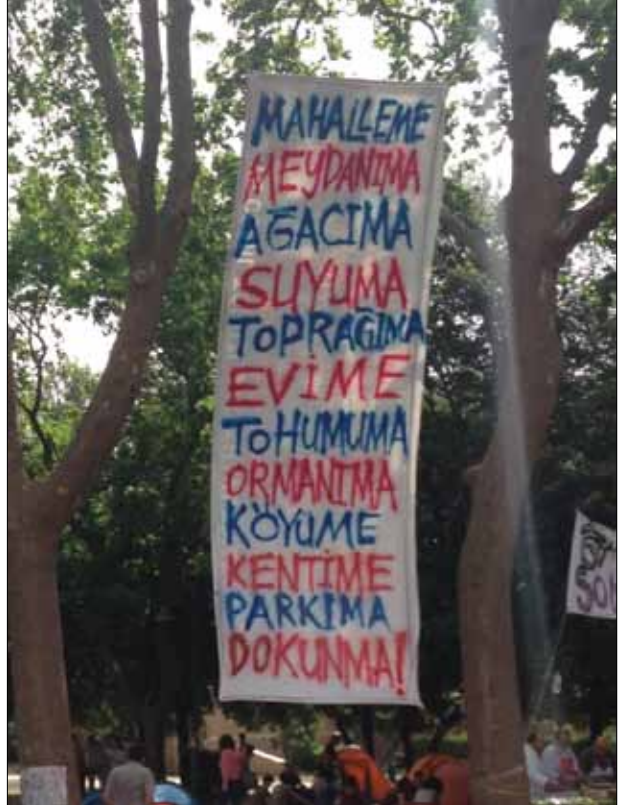 MAHALLEME
MEYDANIMA
AĞACIMA
SUYUMA
TOPRAĞIMA
EVİME
TOHUMUMA
ORMANIMA
KÖYÜME
KENTİME
PARKIMA
DOKUNMA!